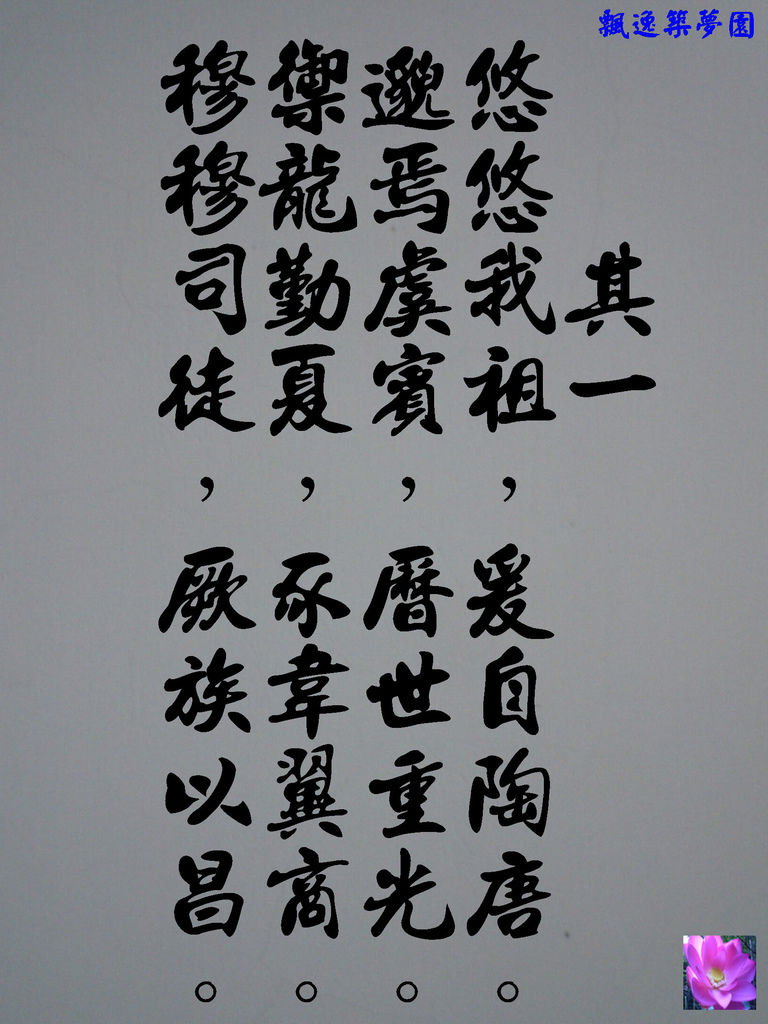 飄逸築夢園
其一
悠悠我祖，爰自陶唐。
邈焉虞賓，曆世重光。
禦龍勤夏，豕韋翼商。
穆穆司徒，厥族以昌。